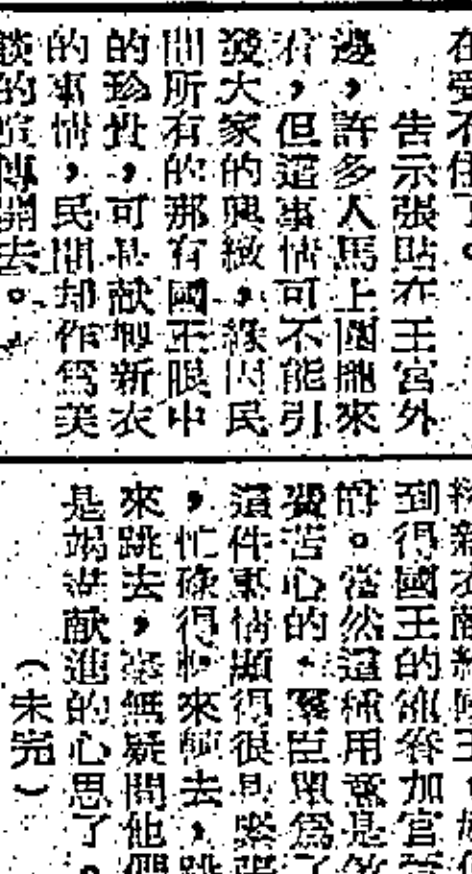 在受不住了。
告示張貼在王宮外
邊，許多人馬上圍攏來
看，但這事情可不能引
發大家的興緻，緣因民
間所有的那有國王眼中
的珍貴，可是献製新衣
的事情，民間却作爲美
談的宣傳開去。
到得國王的雒容加官
的。當然這種用意是
費苦心的，羣臣單爲了
這件事情顯得很是緊張
，忙碌得來去，跳
來跳去，毫無疑問他們
是竭盡献進的心思了。
（未完）